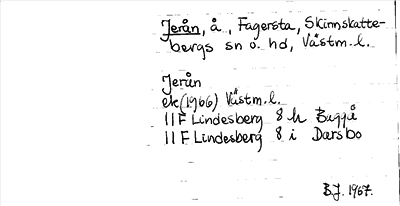 Jerån, å, Fagersta, Skinnskatte-
bergs sn o. hd, Västm.l.
Jerån
ek (1966) Västm.l.
11F Lindesberg 8 h Buggå
11F Lindesberg 8 i Dársbo
B.J. 1967.